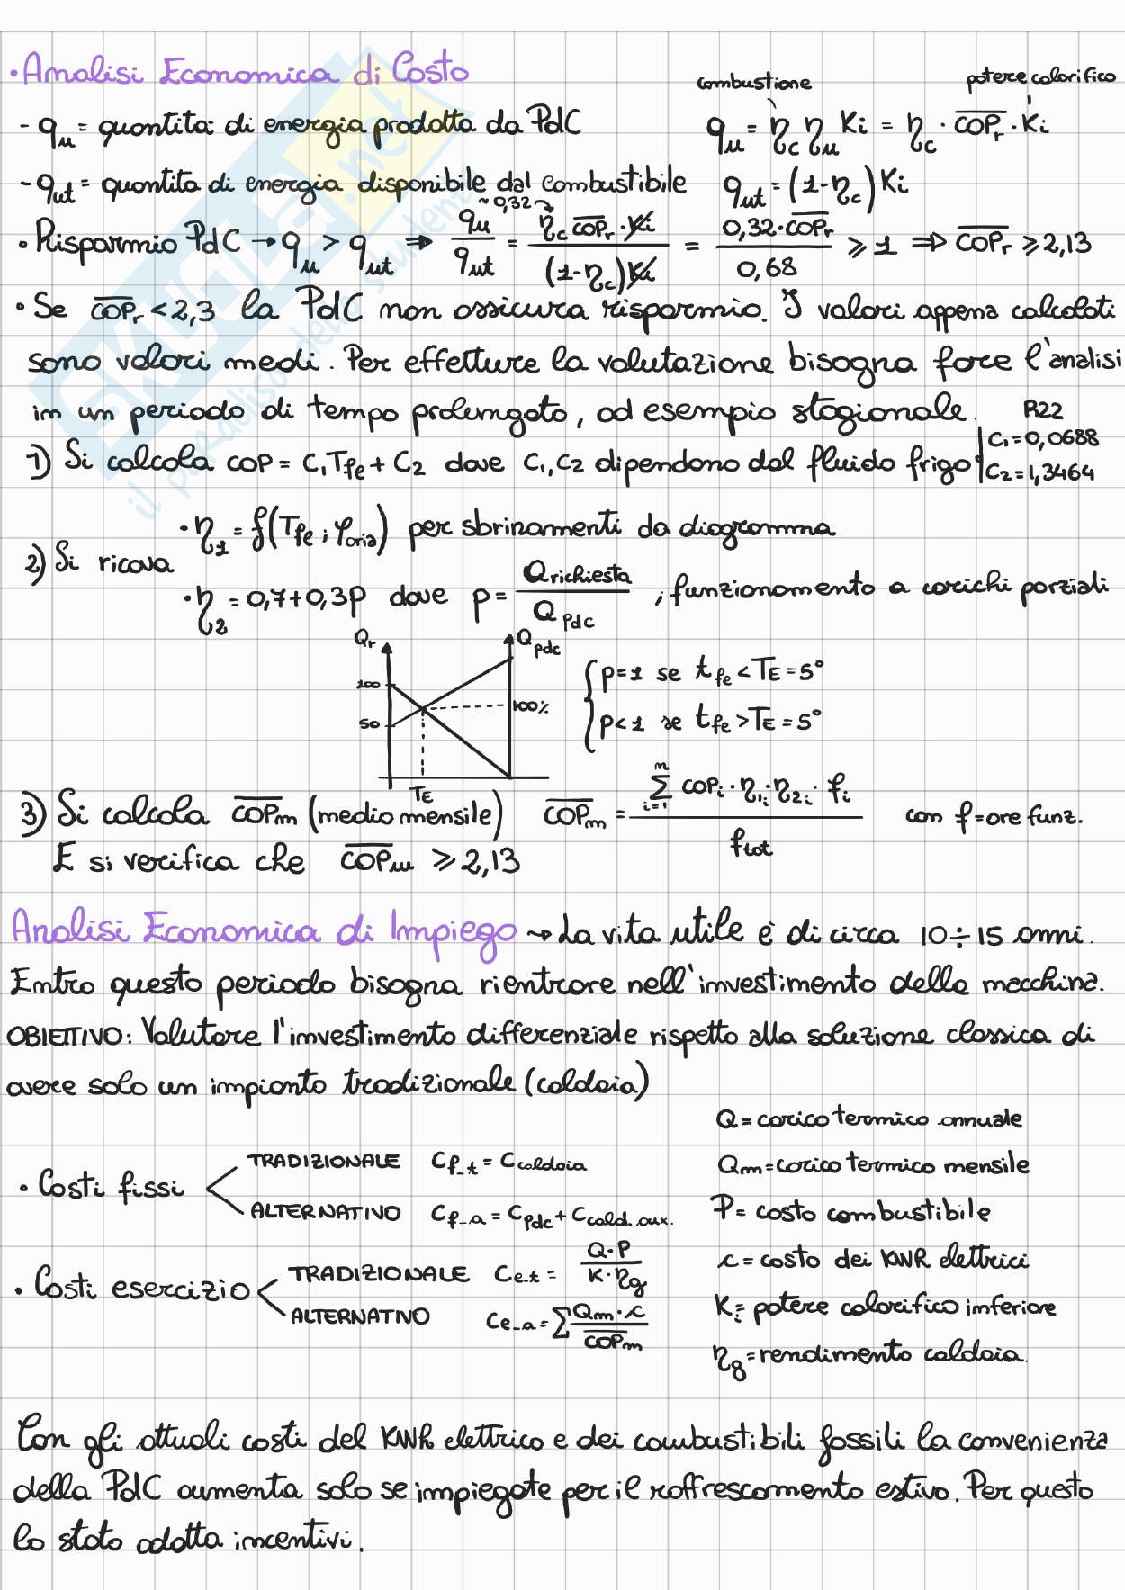 • Analisi Economica di Costo
combustione potere calorifico
- qu = quantità di energia prodotta da PdC qu = ηc ηu Ki = ηc · COPr · Ki
- qut = quantita di energia disponibile dal combustibile qut = (1-ηc) Ki
• Risparmio PdC → qu > qut ⇒ qu/qut = ηc COPr · Ki / (1-ηc) Ki = 0,32 · COPr / 0,68 ≥ 1 ⇒ COPr ≥ 2,13
~0,32
• Se COPr < 2,3 la PdC non assicura risparmio. I valori appena calcolati
sono valori medi. Per effetture la valutazione bisogna fare l'analisi
in un periodo di tempo prolungato, ad esempio stagionale.
1) Si calcola COP = C1 Tfe + C2 dove C1, C2 dipendono dal fluido frigo
R22
C1 = 0,0688
C2 = 1,3464
2) Si ricava
• η1 = f(Tfe ; φaria) per sbrinamenti da diagramma
• η2 = 0,7+0,3p dove p = Qrichiesta / Qpdc , funzionamento a carichi parziali
Qr Qpdc
100
50 100%
TE
p = 1 se tfe < TE = 5°
p < 1 se tfe > TE = 5°
3) Si calcola COPm (medio mensile) COPm = Σ i=1 n COPi · η1i · η2i · fi / ftot con f = ore funz.
E si verifica che COPm ≥ 2,13
Analisi Economica di Impiego ⤳ La vita utile è di circa 10÷15 anni.
Entro questo periodo bisogna rientrare nell'investimento della macchina.
OBIETTIVO: Valutare l'investimento differenziale rispetto alla soluzione classica di
avere solo un impianto tradizionale (caldaia)
• Costi fissi
TRADIZIONALE Cf-t = Ccaldaia
ALTERNATIVO Cf-a = Cpdc + Ccald. aux.
• Costi esercizio
TRADIZIONALE Ce-t = Q·P / K·ηg
ALTERNATIVO Ce-a = Σ Qm·c / COPm
Q = carico termico annuale
Qm = carico termico mensile
P = costo combustibile
c = costo dei KWh elettrici
Ki = potere calorifico inferiore
ηg = rendimento caldaia
Con gli attuali costi del KWh elettrico e dei combustibili fossili la convenienza
della PdC aumenta solo se impiegate per il raffrescamento estivo. Per questo
lo stato adotta incentivi.